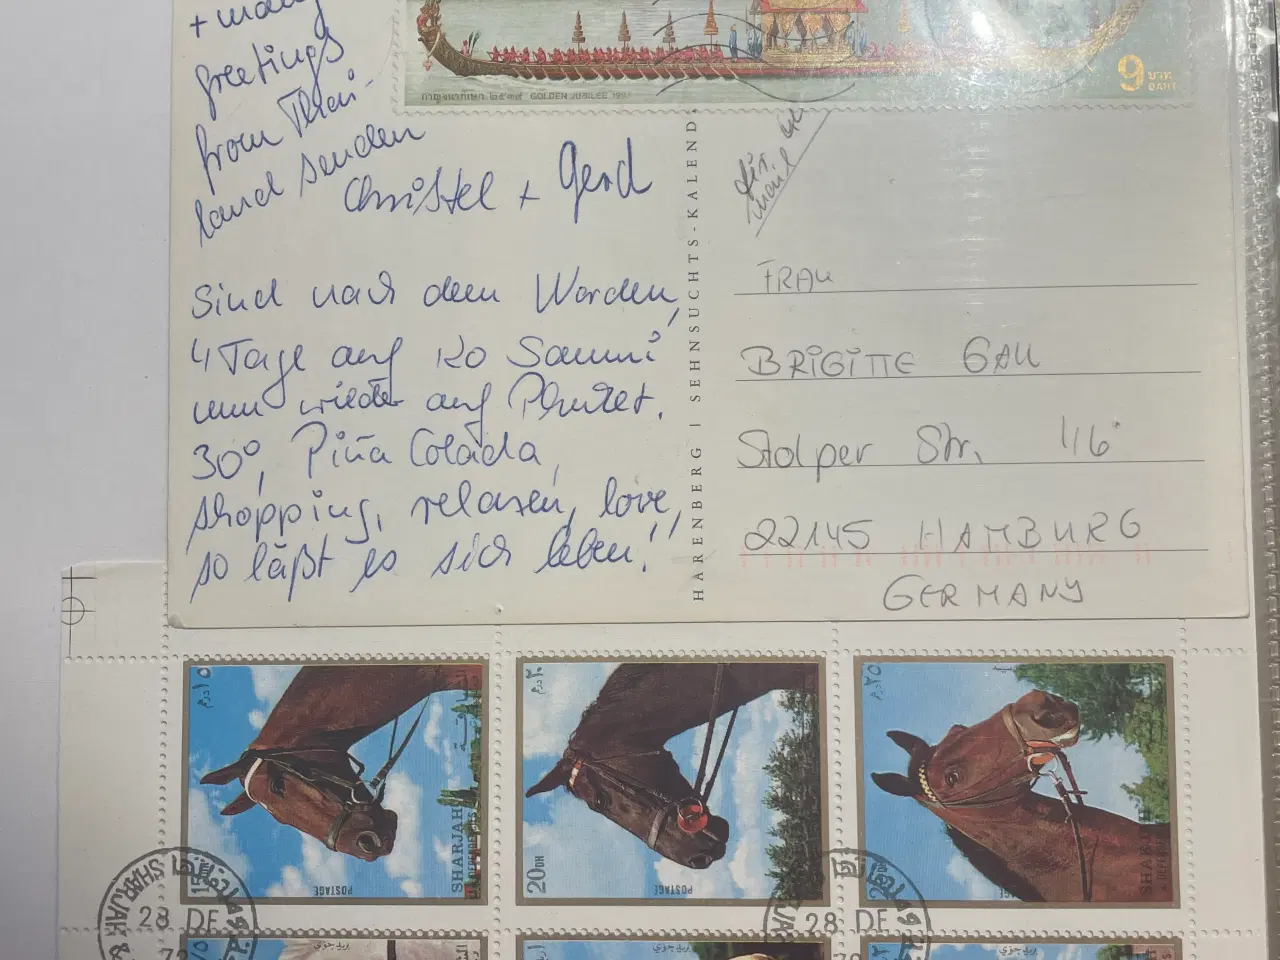 greetings
from Thai-
land senden
Christel + Gerd
Sind nach dem Norden,
4 Tage auf Ko Samui
nun wieder auf Phuket.
30°, Piña Colada,
shopping, relaxen, love,
so läßt es sich leben!!
กาญจนาภิเษก ๒๕๓๙ GOLDEN JUBILEE 1996
9 บาท
BAHT
HARENBERG | SEHNSUCHTS-KALEND
Air
mail
FRAU
BRIGITTE GAU
Stolper Str. 116
22145 HAMBURG
GERMANY
SHARJAH
POSTAGE
20 DH
POSTAGE
POSTAGE
SHARJAH &
28 DE
28 DE
بريد جوي
بريد جوي